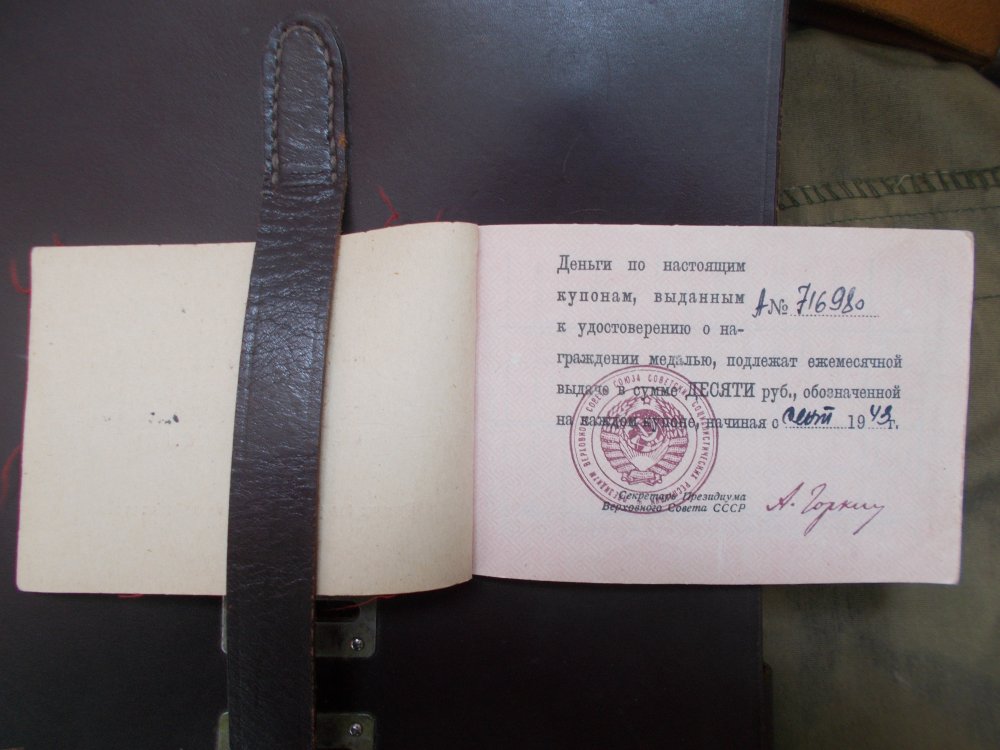 Деньги по настоящим
купонам, выданным А № 716980
к удостоверению о на-
граждении медалью, подлежат ежемесячной
выдаче в сумме ДЕСЯТИ руб., обозначенной
на каждом купоне, начиная с сент 1943 г.
Секретарь Президиума
Верховного Совета СССР А. Горкин